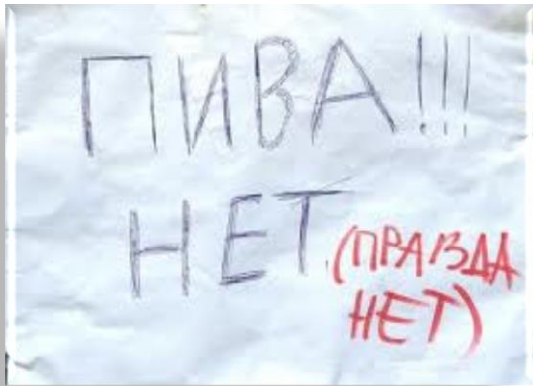 ПИВА!!!
НЕТ.
(ПРАВДА
НЕТ)